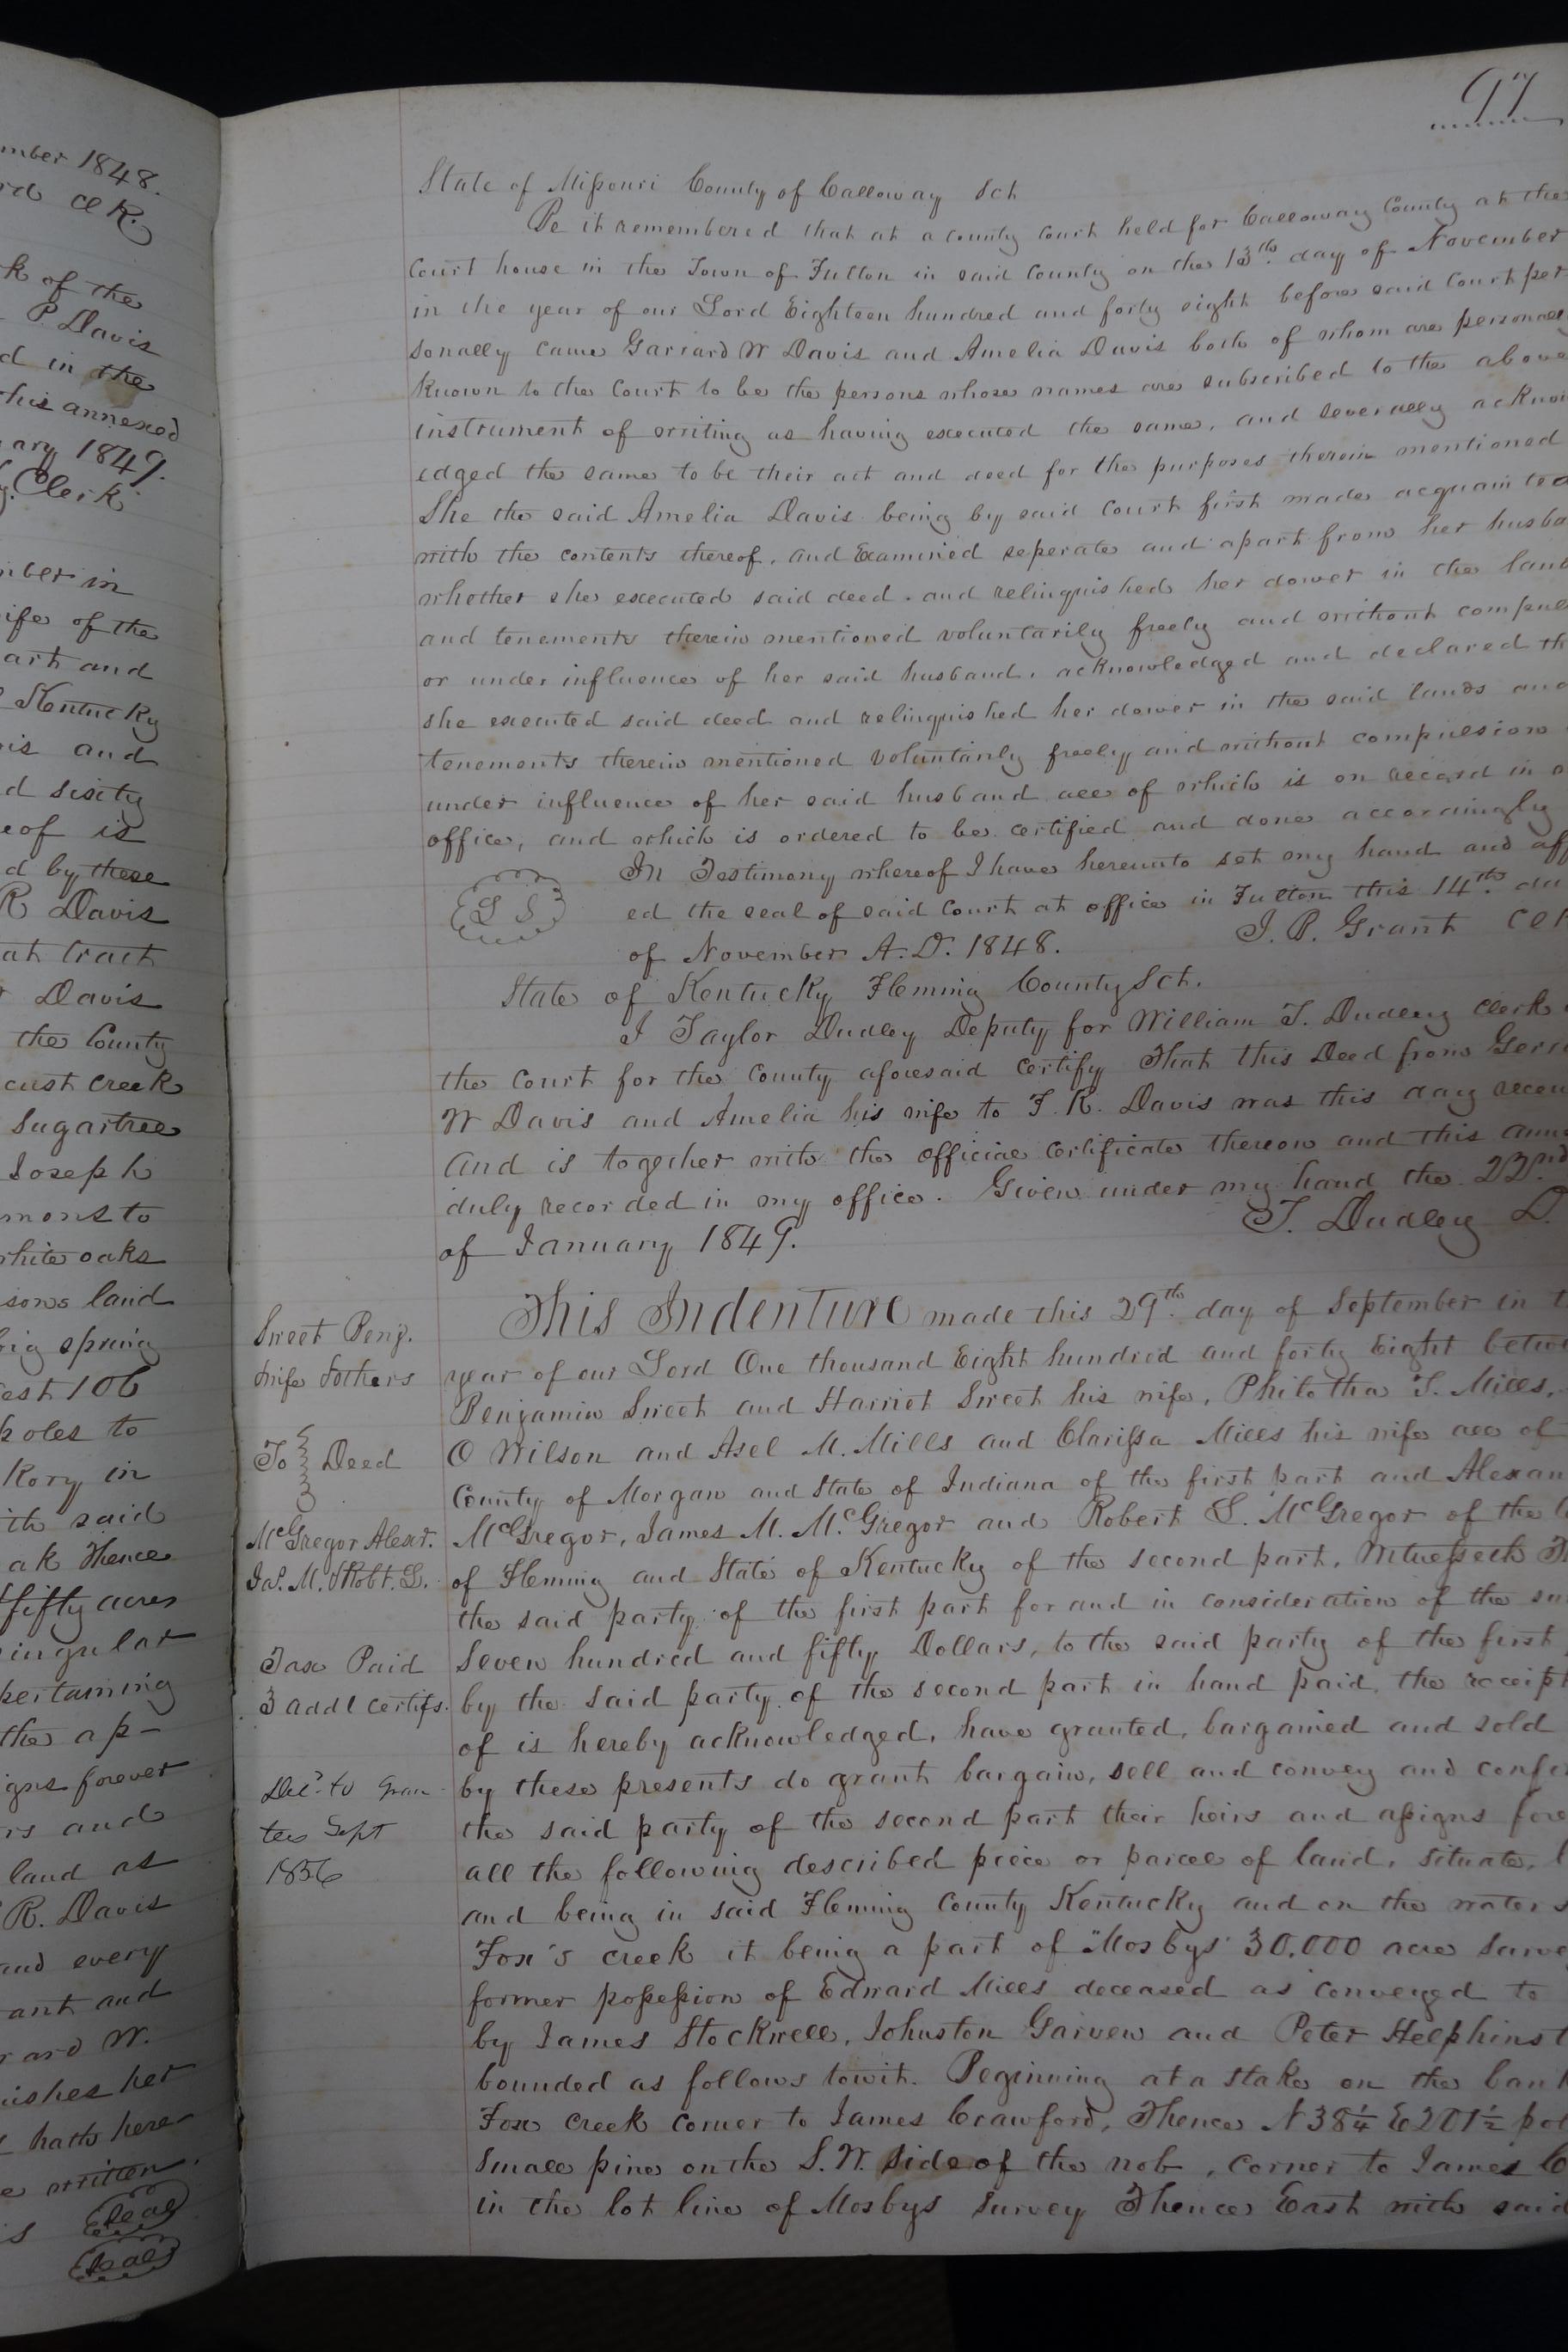 mber 1848.
rd Clk.
k of the
P. Davis
d in the
this annexed
ary 1849.
Clerk
mber in
ife of the
art and
Kentucky
is and
d sixty
eof is
d by these
R Davis
at tract
Davis
the County
cust creek
Sugartree
Joseph
mons to
white oaks
sons land
big spring
est 106
poles to
kory in
ith said
ak Thence
fifty acres
singular
pertaining
the ap-
igns forever
rs and
land as
R. Davis
and every
ant and
rard W.
uishes her
hath here
e written.
s Seal
Seal
97
State of Missouri County of Calloway Sct
Be it remembered that at a county court held for Calloway County at the
Court house in the Town of Fulton in said County on the 13th. day of November
in the year of our Lord Eighteen hundred and forty eight before said Court per
sonally came Garrard W Davis and Amelia Davis both of whom are personall
known to the Court to be the persons whose names are subscribed to the above
instrument of writing as having executed the same, and severally acknow
edged the same to be their act and deed for the purposes therein mentioned
She the said Amelia Davis being by said Court first made acquainted
with the contents thereof, and Examined seperate and apart from her husba
whether she executed said deed and relinquished her dower in the land
and tenements therein mentioned voluntarily freely and without compul
or under influence of her said husband, acknowledged and declared th
she executed said deed and relinquished her dower in the said lands and
tenements therein mentioned voluntarily freely and without compulsion
under influence of her said husband all of which is on record in
office, and which is ordered to be certified and done accordingly
In Testimony whereof I have hereunto set my hand and aff
L S
ed the seal of said Court at office in Fulton this 14th. da
of November A.D. 1848. I. P. Grant Cl
State of Kentucky Fleming County Sct.
I Taylor Dudley Deputy for William T. Dudley Clerk
the Court for the County aforesaid certify That this Deed from Gerr
W Davis and Amelia his wife to F. R. Davis was this day
And is together with the official certificate thereon and this ann
duly recorded in my office. Given under my hand the 22nd
of January 1849. T. Dudley D.
Sweet Benj.
wife & others
To Deed
McGregor Alexr.
Jas. M. & Robt. S.
Tax Paid
3 addl certifs.
Deld. to Gran
tee Sept
1856
This Indenture made this 29th. day of September in t
year of our Lord One thousand Eight hundred and forty Eight betwe
Benjamin Sweet and Harriet Sweet his wife, Philotha T. Mills,
O Wilson and Asel M. Mills and Clarissa Mills his wife all of
County of Morgan and State of Indiana of the first part and Alexan
McGregor, James M. McGregor and Robert S. McGregor of the
of Fleming and State of Kentucky of the second part, Witnesseth
the said party of the first part for and in consideration of the su
Seven hundred and fifty Dollars, to the said party of the first
by the said party of the second part in hand paid, the receipt
of is hereby acknowledged, have granted, bargained and sold
by these presents do grant bargain, sell and convey and confir
the said party of the second part their heirs and assigns fore
all the following described piece or parcel of land, situate, l
and being in said Fleming County Kentucky and on the waters
Fox's creek it being a part of "Mosbys" 30.000 acre surve
former possession of Edward Mills deceased as conveyed to
by James Stockwell, Johnston Garven and Peter Helphinst
bounded as follows towit. Beginning at a stake on the bank
Fox Creek corner to James Crawford, Thence N 38¼ E 201½ pol
small pine on the S.W. side of the nob, corner to James C
in the lot line of Mosbys survey Thence East with said